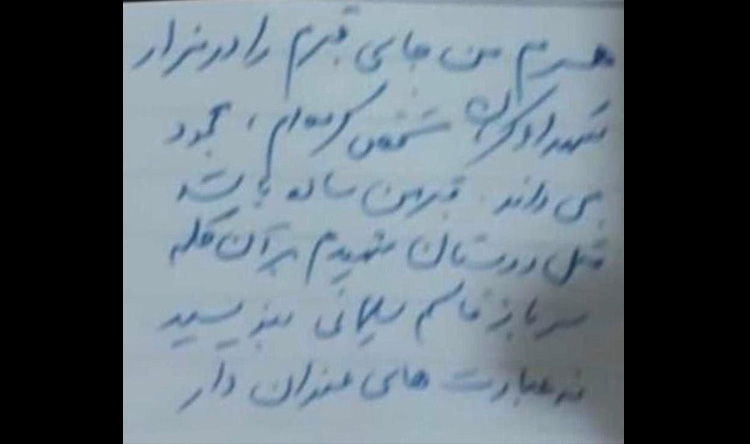 همسرم من جای قبرم را در مزار
شهدا کرمان مشخص کرده‌ام، محمود
می داند. قبر من ساده باشد
مثل دوستان شهیدم بر آن کلمه
سرباز قاسم سلیمانی بنویسید
نه عبارت های عنوان دار